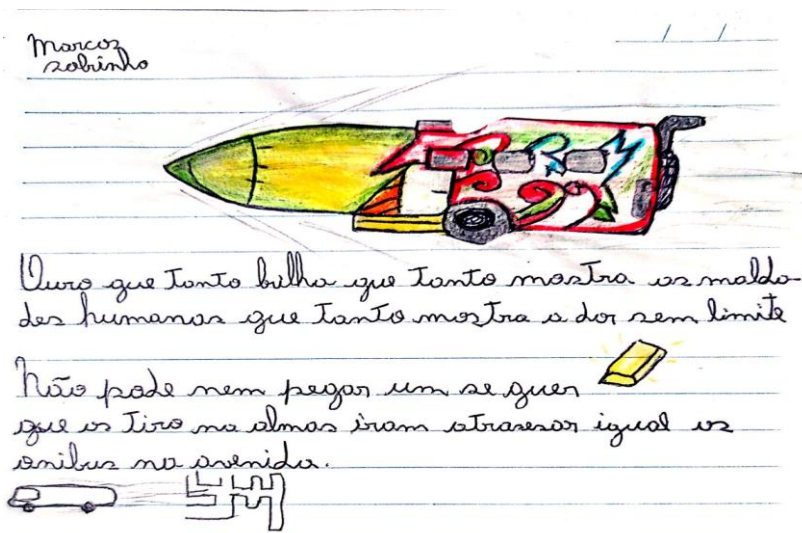 Marcoz
sobrinho
/ /
Ouro que Tanto bilha que Tanto mostra as malda-
des humanas que Tanto mostra a dor sem limite
Não pode nem pegar um se quer
que os Tiro na almas iram atrasesar igual os
onibus na avenida.